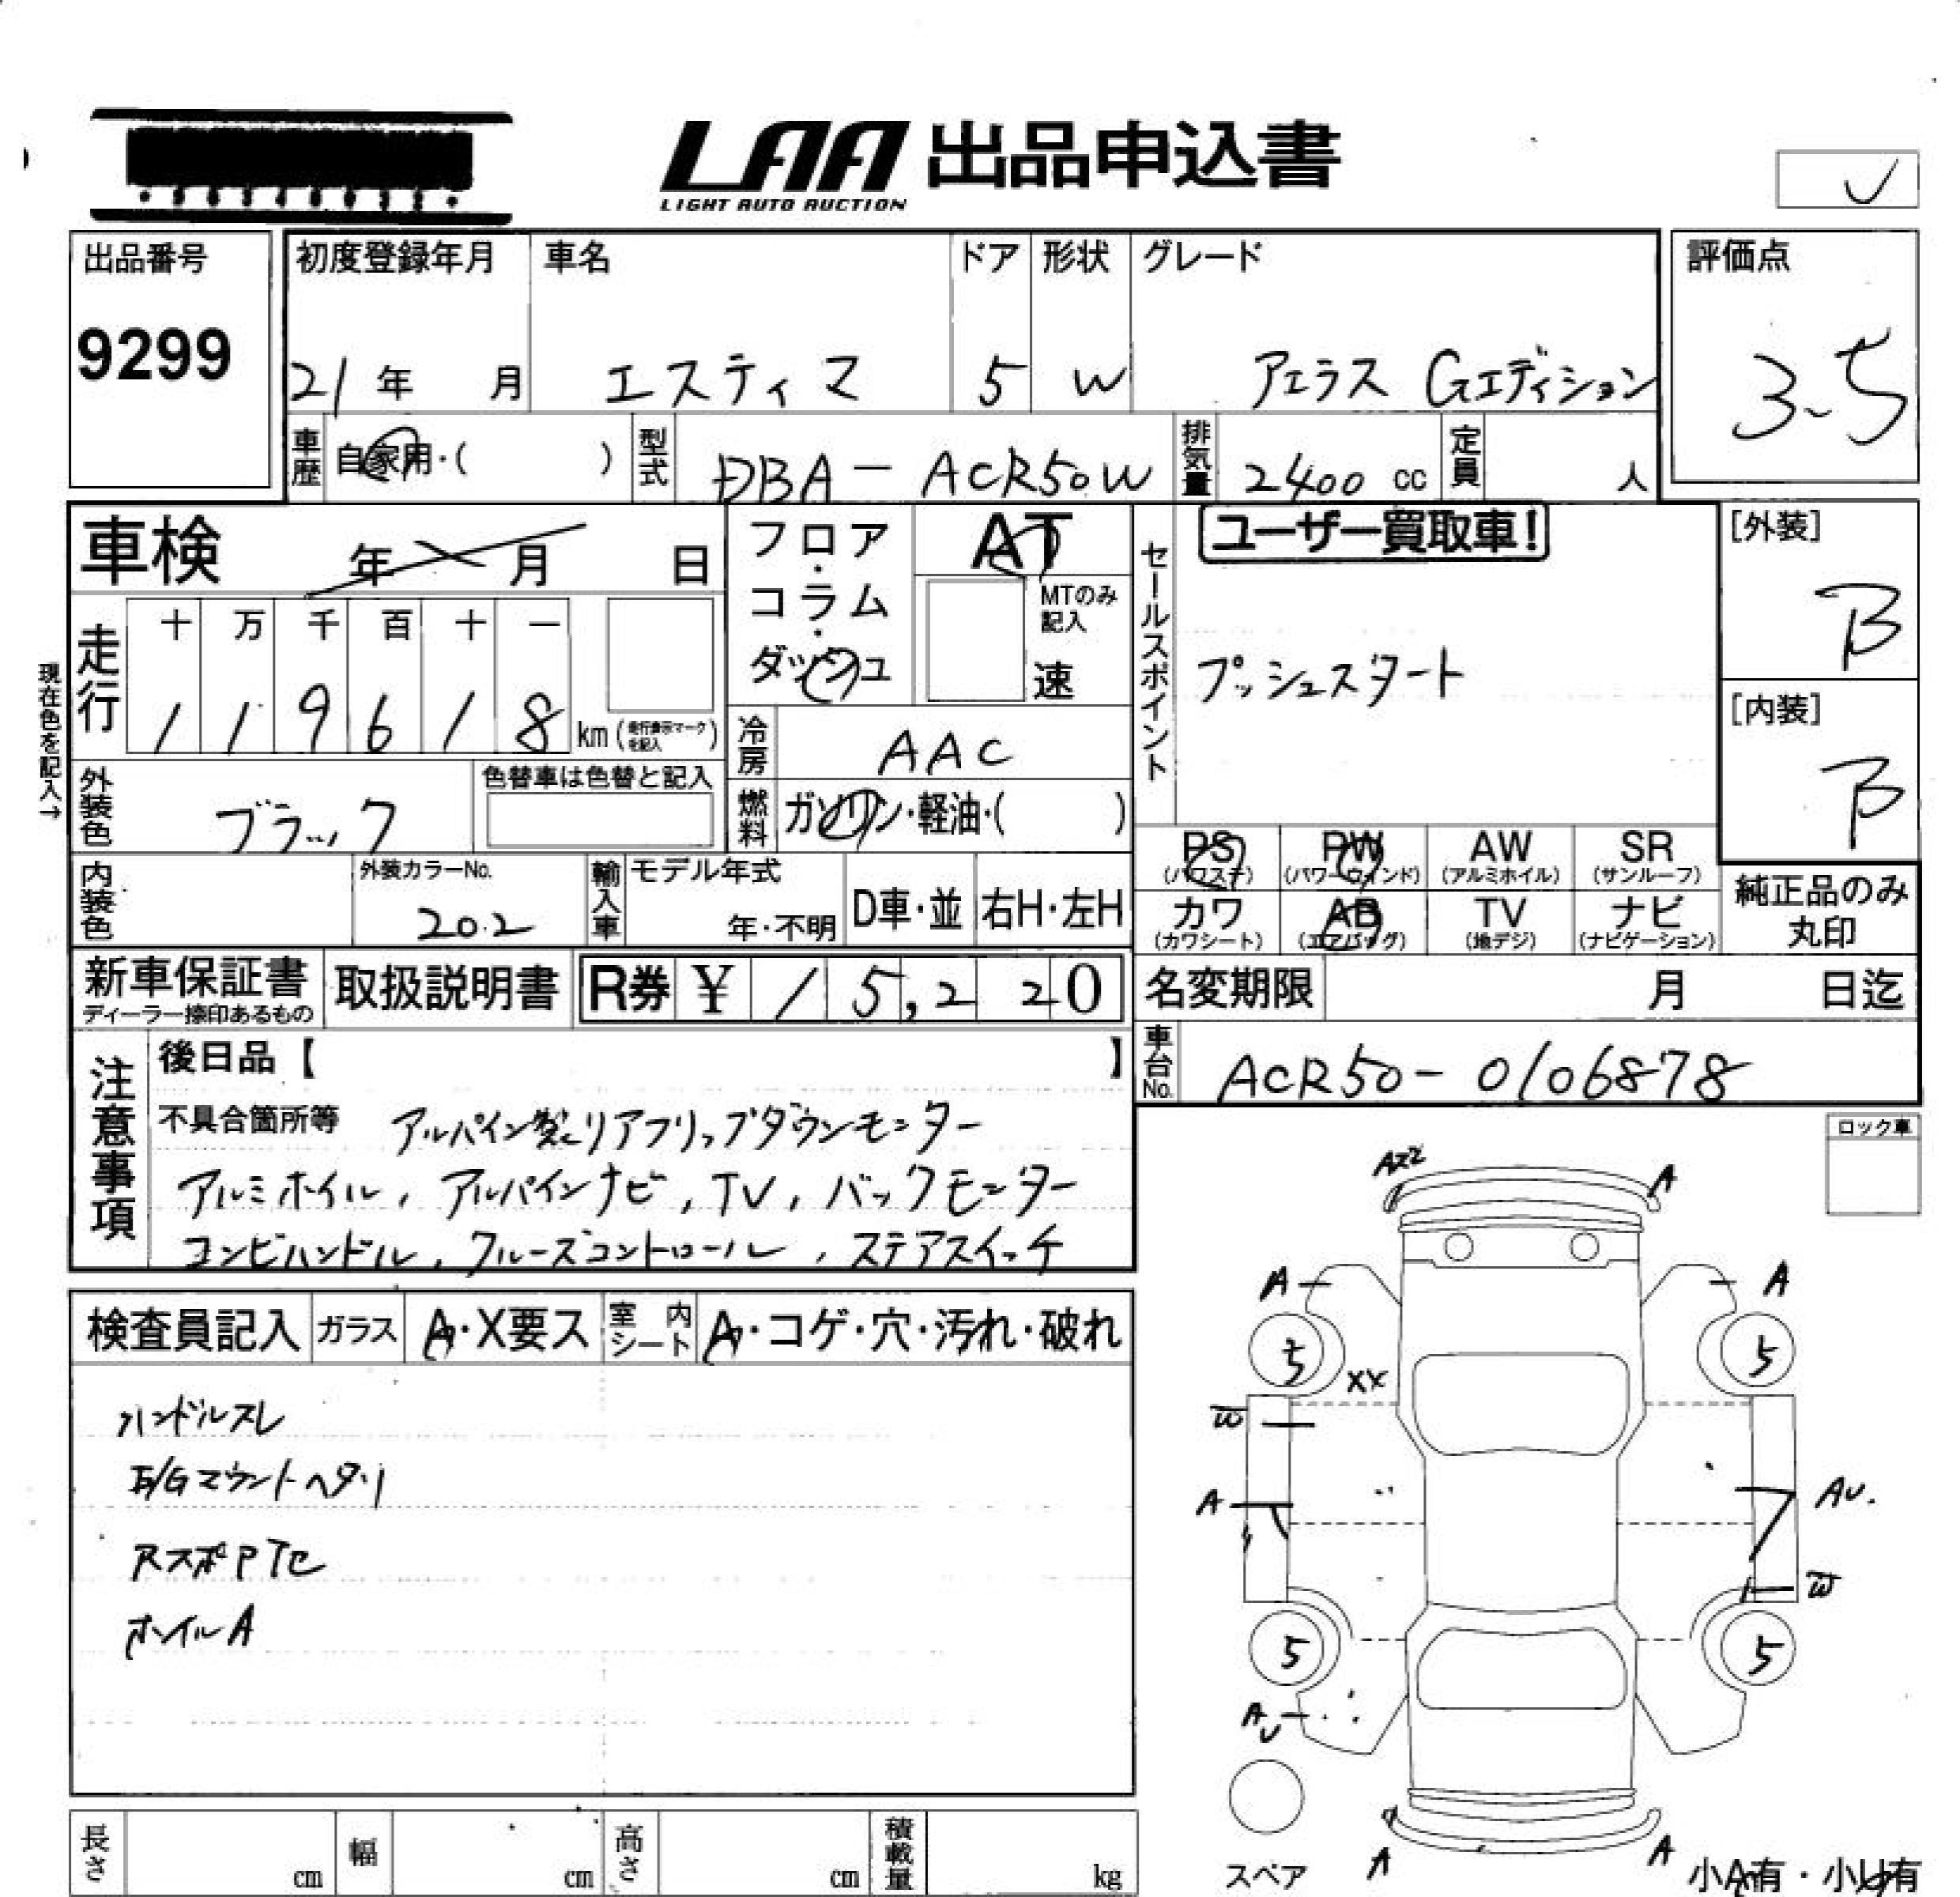 LAA 出品申込書
LIGHT AUTO AUCTION
出品番号
9299
初度登録年月 車名 ドア 形状 グレード
21年 月 エスティマ 5 W アエラス Gエディション
評価点
3.5
車歴 自家用・( ) 型式 DBA-ACR50W 排気量 2400 cc 定員 人
車検 年 月 日
フロア・コラム・ダッシュ
AT
MTのみ記入
速
セールスポイント
ユーザー買取車!
プッシュスタート
[外装]
B
[内装]
B
現在色を記入→
走行
十 万 千 百 十 一
1 1 9 6 1 8 km (走行表示マークを記入)
冷房 AAC
燃料 ガソリン・軽油・( )
外装色 ブラック
色替車は色替と記入
内装色
外装カラーNo.
202
輸入車 モデル年式
年・不明
D車・並 右H・左H
PS PW AW SR
(パワステ) (パワーウインド) (アルミホイル) (サンルーフ)
カワ AB TV ナビ
(カワシート) (エアバッグ) (地デジ) (ナビゲーション)
純正品のみ
丸印
新車保証書
ディーラー捺印あるもの
取扱説明書 R券 ¥ 15,220
名変期限 月 日迄
車台No. ACR50-0106878
注意事項
後日品【 】
不具合箇所等 アルパイン製リアフリップダウンモニター
アルミホイル, アルパインナビ, TV, バックモニター
コンビハンドル, クルーズコントロール, ステアスイッチ
ロック車
検査員記入 ガラス A・X要ス 室内シート A・コゲ・穴・汚れ・破れ
ハンドルスレ
E/Gマウントヘタリ
RスポPTセ
ホイルA
A A
A A
5 5
XX
W
A AU.
W
5 5
AU
A A
スペア
小A有・小U有
長さ cm 幅 cm 高さ cm 積載量 kg